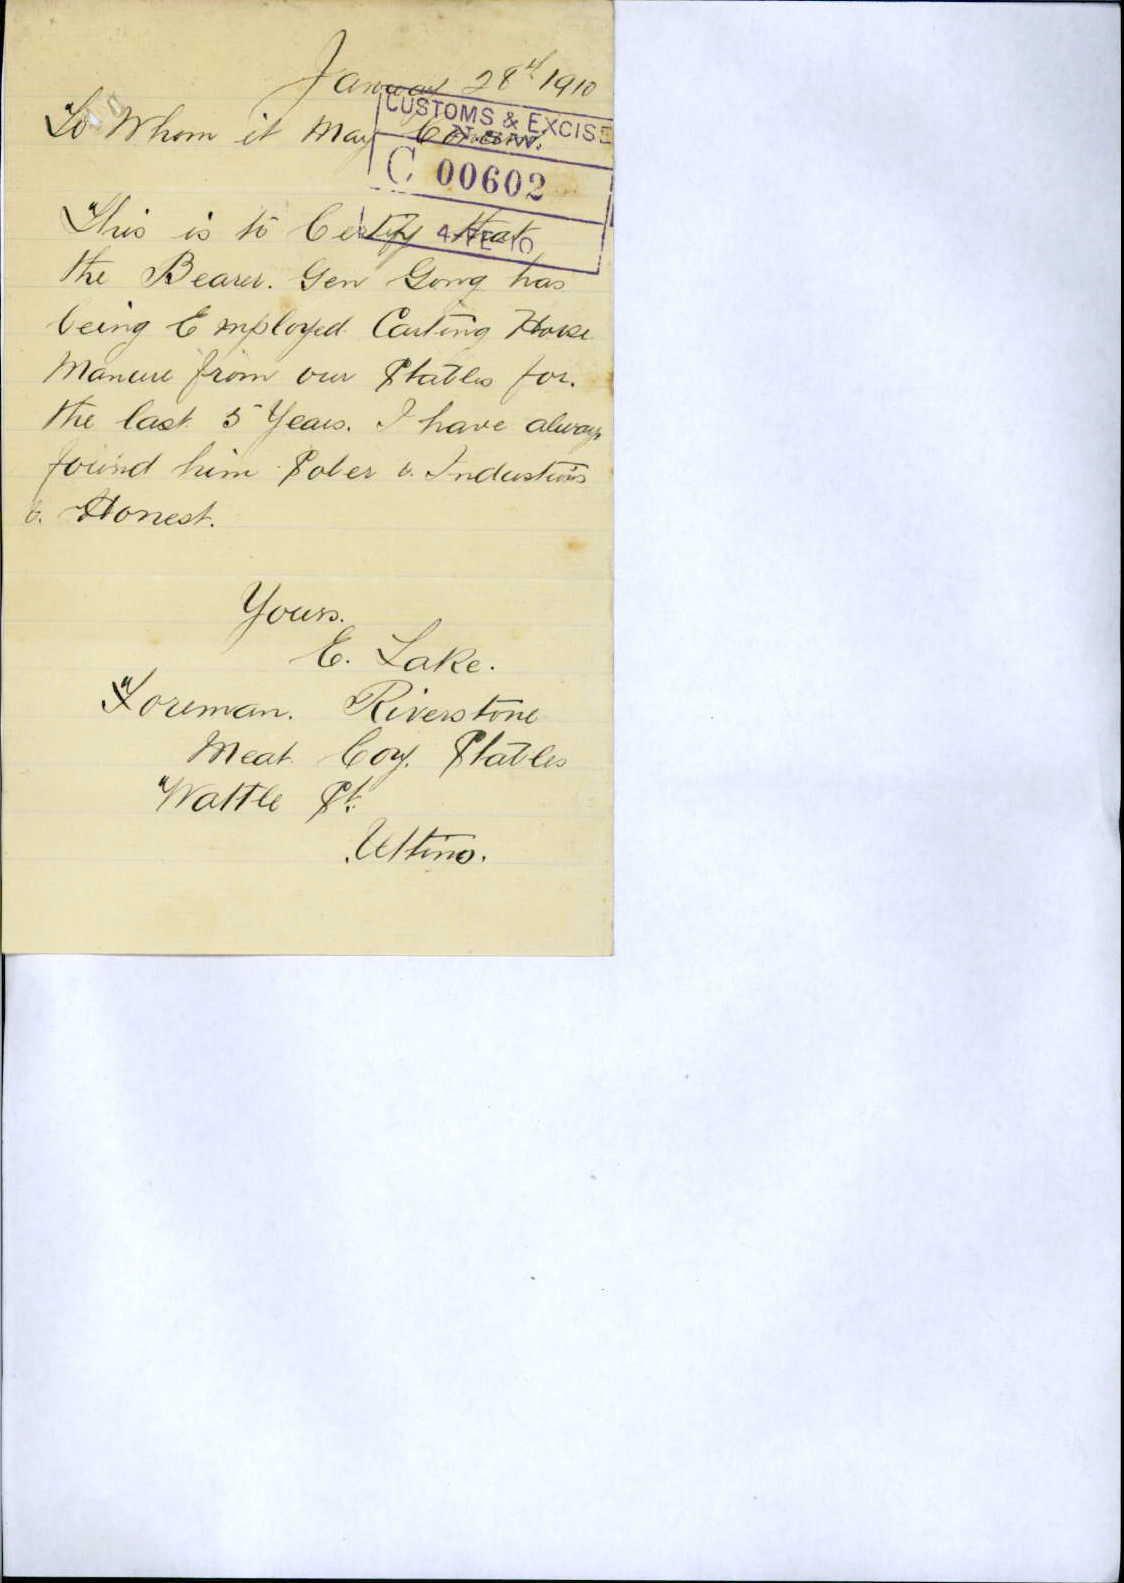 January 28th 1910
To Whom it May Concern
CUSTOMS & EXCISE
N.S.W.
C 00602
4 FE 10
This is to Certify that
the Bearer. Gen Gong has
being Employed Carting Horse
Manure from our Stables for.
the last 5 Years. I have always
found him Sober & Industrious
& Honest.
Yours.
E. Lake.
Foreman. Riverstone
Meat Coy. Stables
Wattle St.
Ultimo.